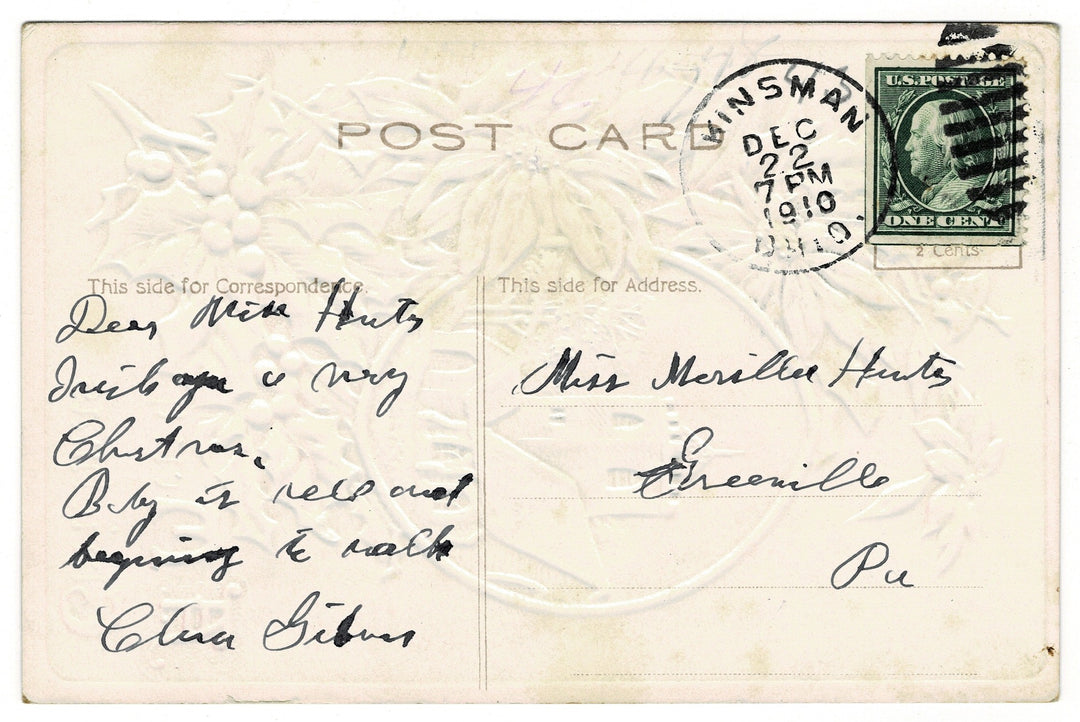 POST CARD
KINSMAN
DEC
22
7 PM
1910
OHIO.
U.S. POSTAGE
ONE CENT
2 Cents
This side for Correspondence.
Dear Miss Hunter
I wish you a very
Christmas.
Baby is well and
begining to walk
Clara
This side for Address.
Miss Hunter
Greenville
Pa